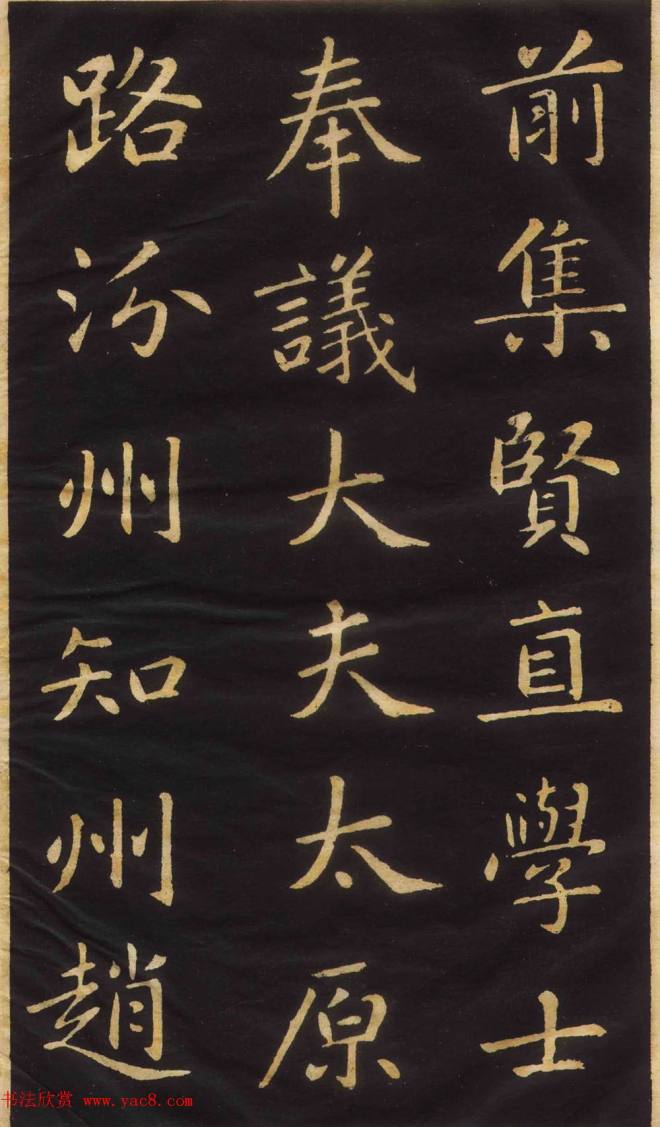 前集賢直學士
奉議大夫太原
路汾州知州趙
书法欣赏 www.yac8.com